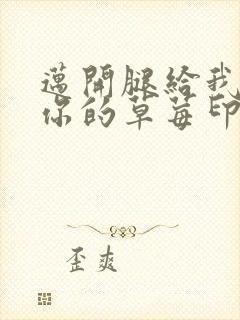 邁開腿給我
你的草莓印
歪爽